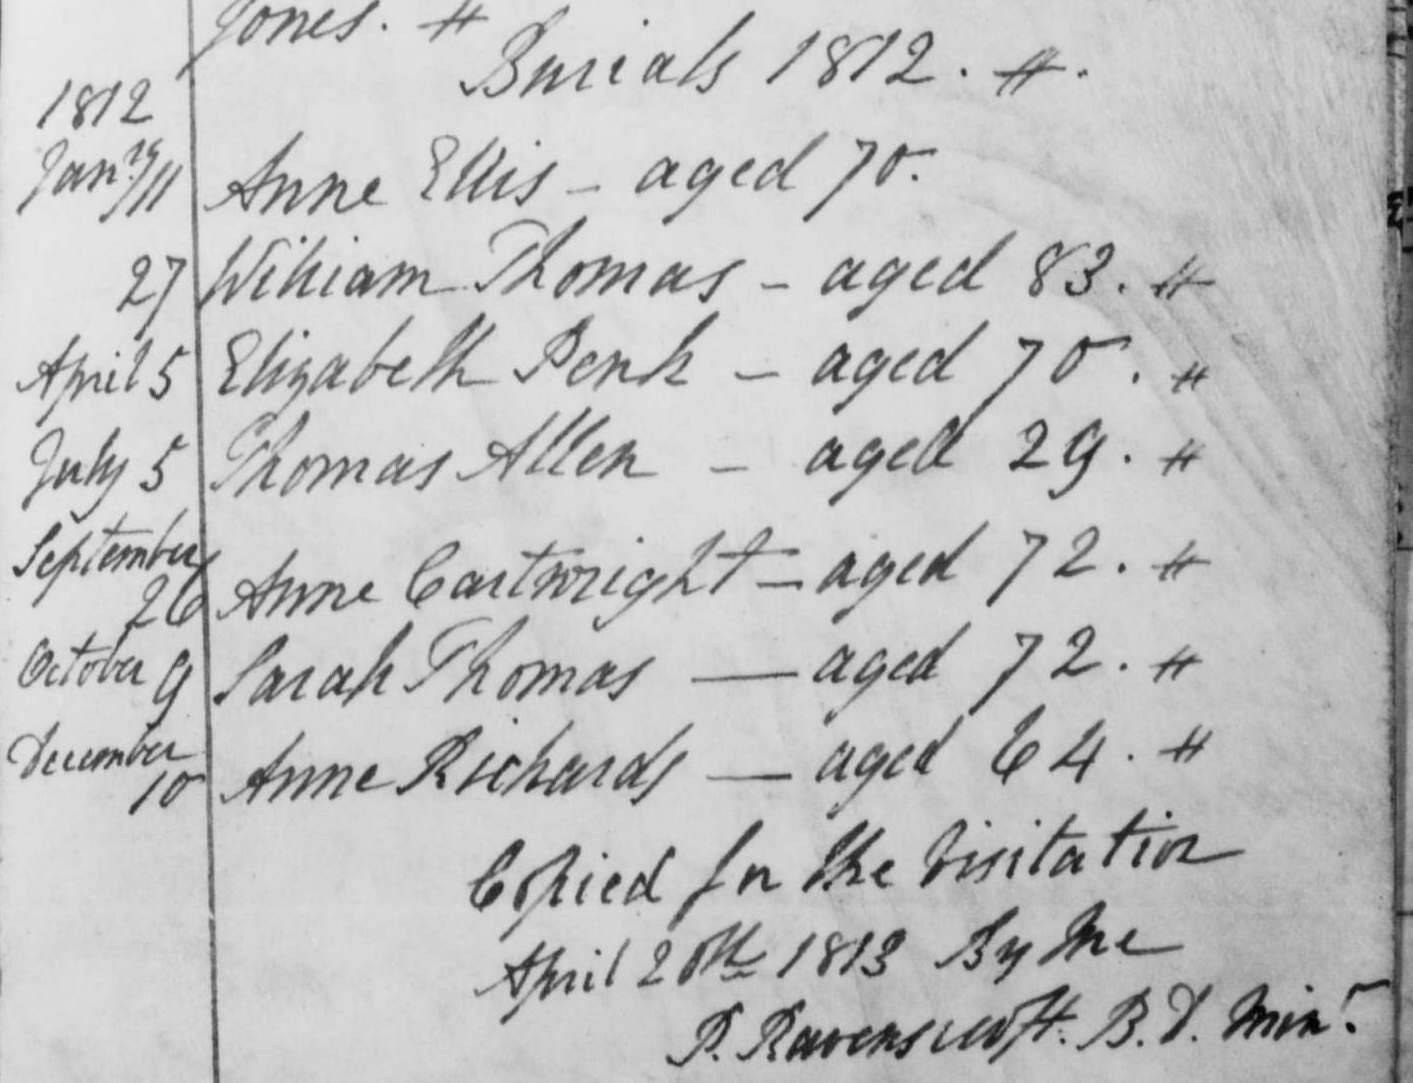 Jones. #
Burials 1812. #.
1812
Janry 11 Anne Ellis - aged 70.
27 William Thomas - aged 83. #
April 5 Elizabeth Penk - aged 70. #
July 5 Thomas Allen - aged 29. #
September
26 Anne Cartwright - aged 72. #
October 9 Sarah Thomas — aged 72. #
December
10 Anne Richards — aged 64. #
Copied for the Visitation
April 20th 1813 By Me
P. Ravenscroft. B.D. Minr.